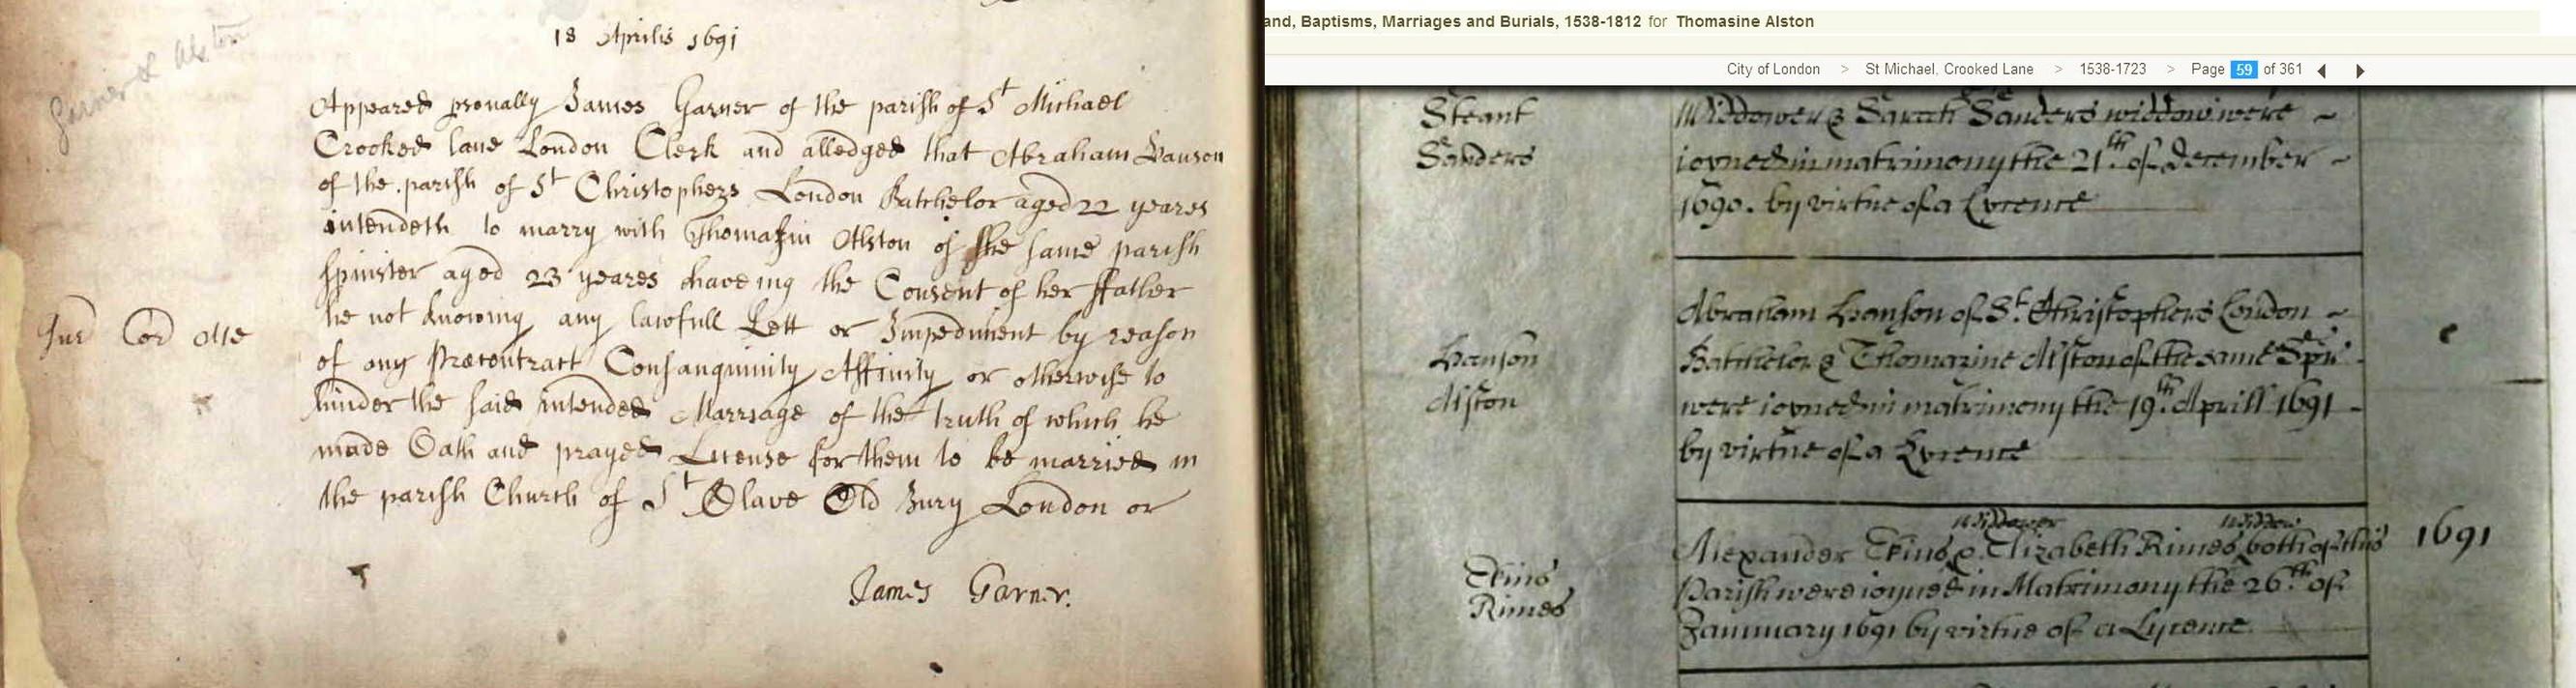 18 Aprilis 1691
Garner & Alston
Appeared psonally James Garner of the parish of St Michael
Crooked lane London Clerk and alledged that Abraham Hanson
of the parish of St Christophers London Batchelor aged 22 yeares
intendeth to marry with Thomazin Alston of the same parish
spinster aged 23 yeares haveing the Consent of her ffather
he not knowing any lawfull Lett or Impediment by reason
Jur Cor
of any Præcontract Consanquinity Affinity or otherwise to
hinder the said intended Marriage of the truth of which he
made Oath and prayed License for them to be married in
the parish Church of St Olave Old Jury London or
James Garner.
and, Baptisms, Marriages and Burials, 1538-1812 for Thomasine Alston
City of London > St Michael, Crooked Lane > 1538-1723 > Page 59 of 361
Steant
Sanders
Widdower & Sarah Sanders widdow were ~
ioyned in matrimony the 21th of december ~
1690. by virtue of a Lycence
Hanson
Alston
Abraham Hanson of St. Christophers London ~
Batchelor & Thomazine Alston of the same Spir
were ioyned in matrimony the 19th. Aprill 1691 -
by virtue of a Lycence
Ekins
Rimes
widdower widdow
Alexander Ekins & Elizabeth Rimes both of this
Parish were ioyned in Matrimony the 26th. of
January 1691 by virtue of a Lycence.
1691